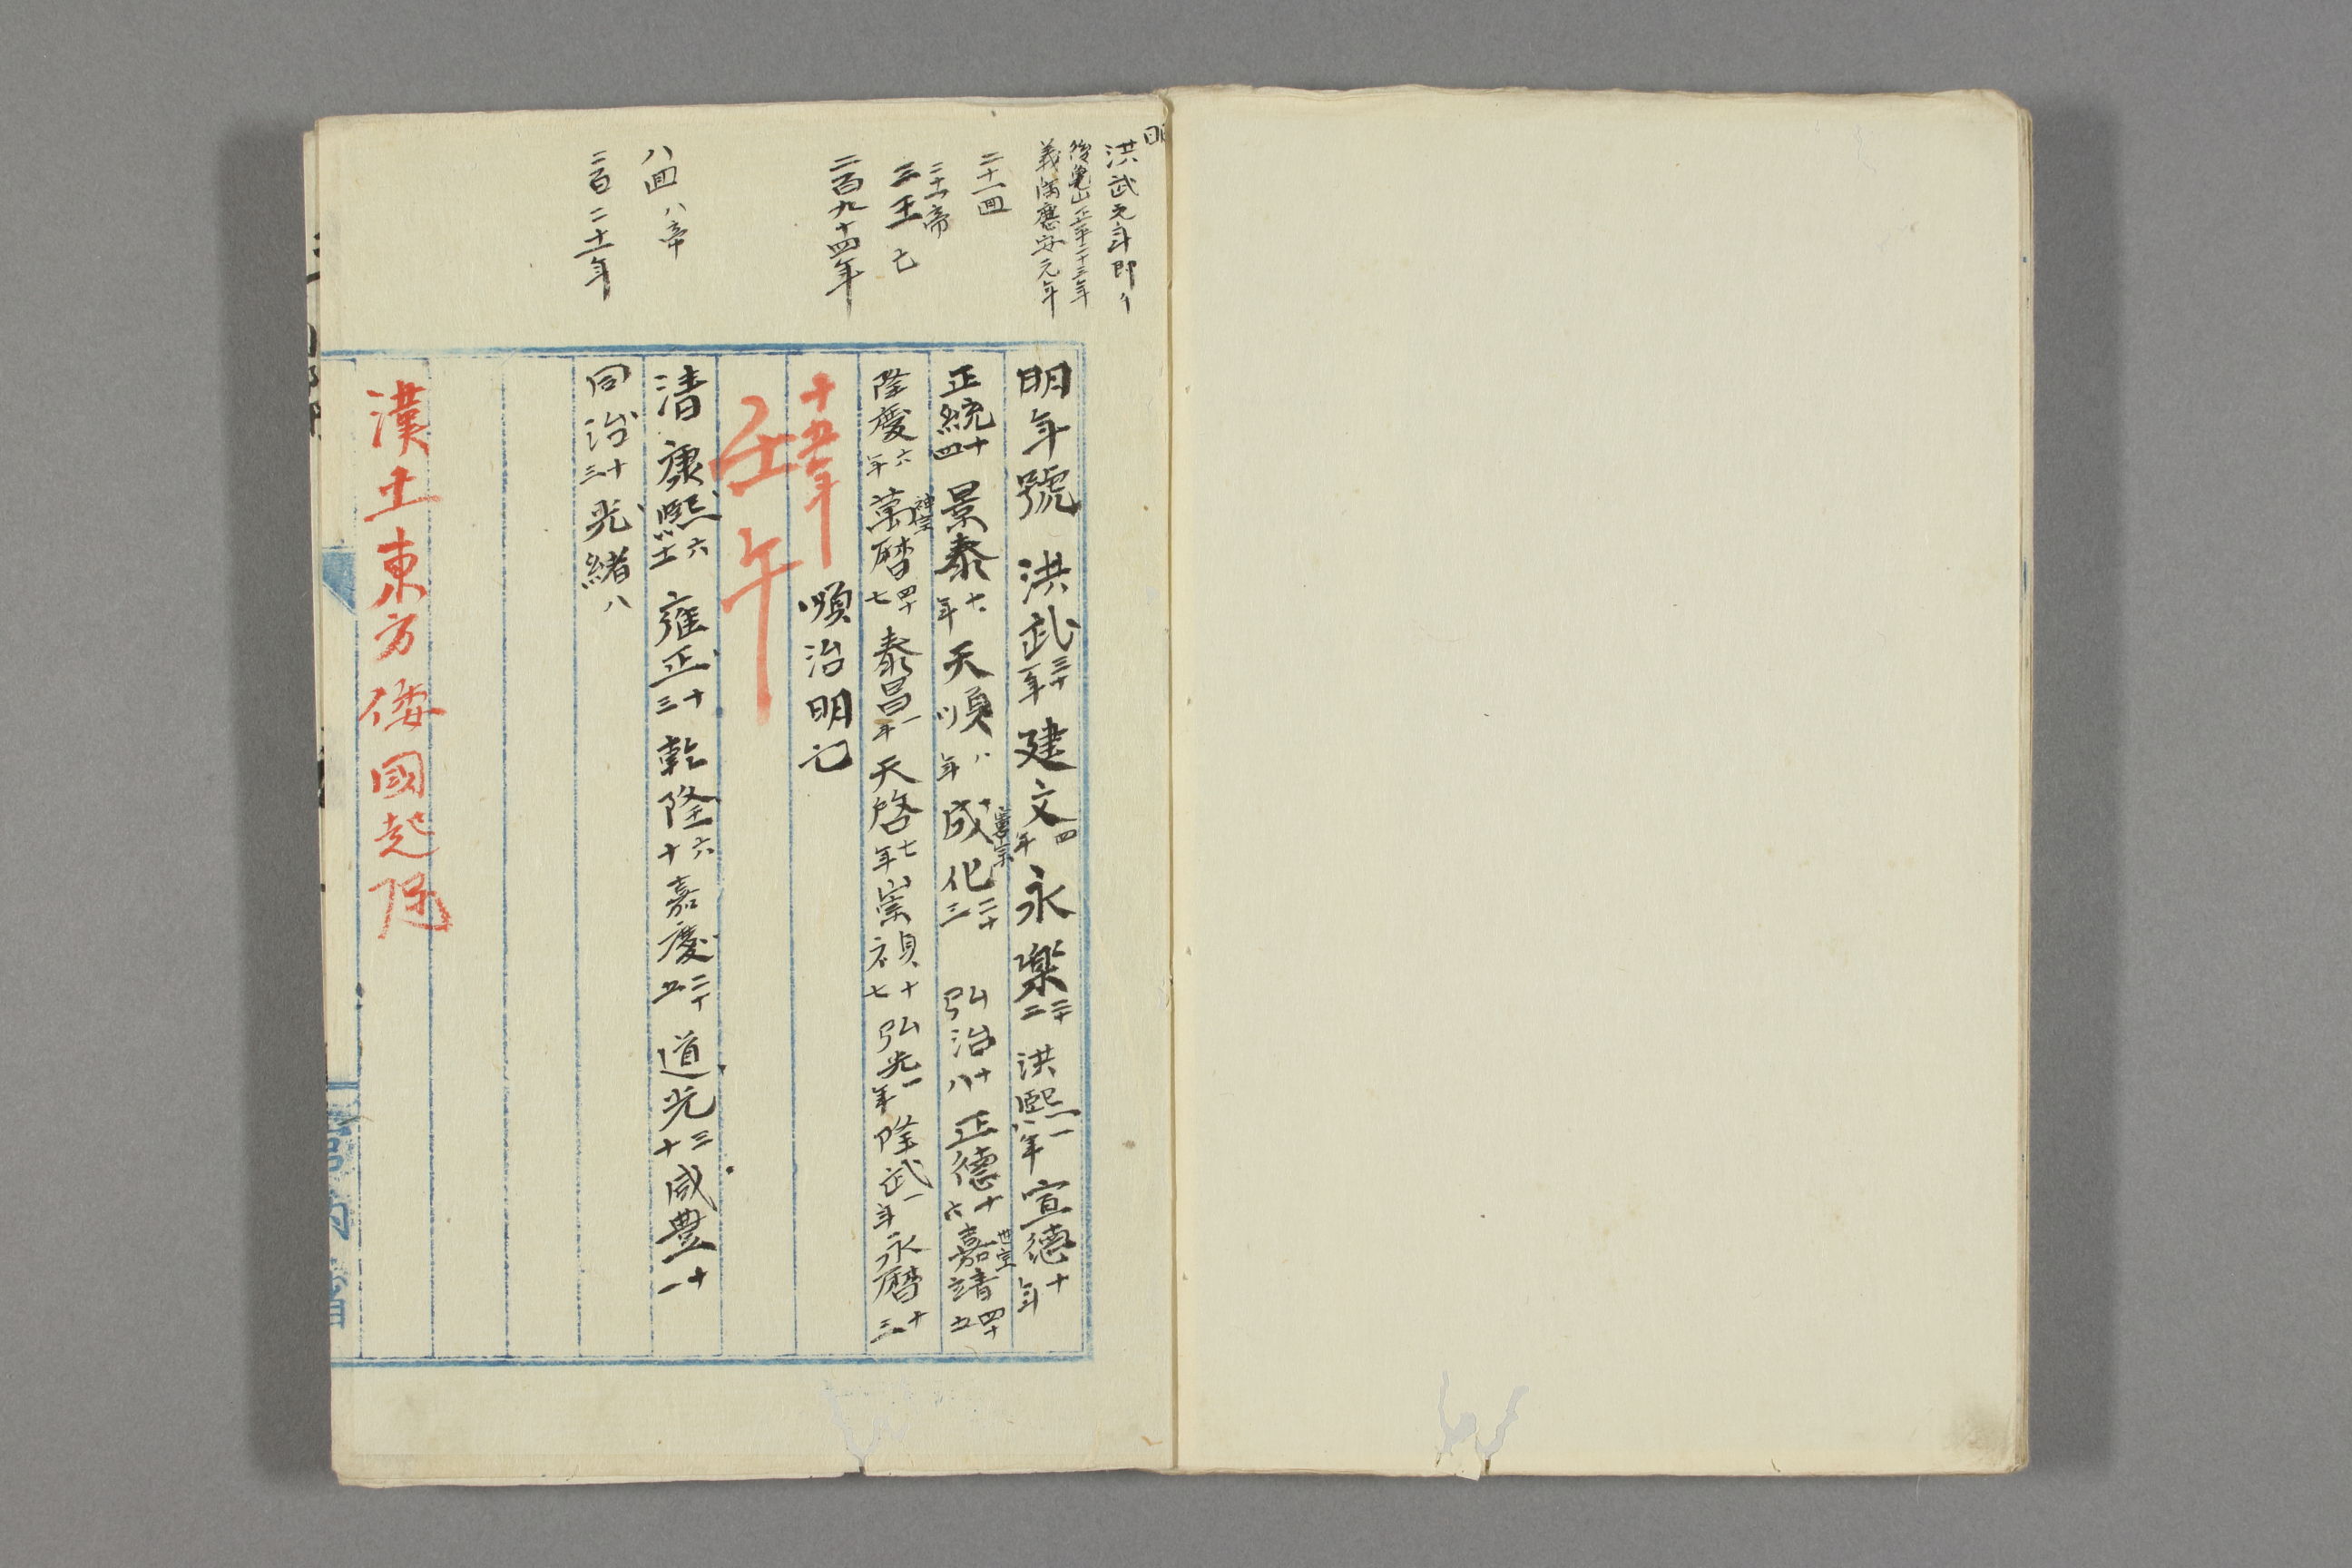 明
洪武元年即
後亀山正平二十三年
義満應安元年
二十一回
二十一帝
三王 亡
二百九十四年
八回 八帝
二百二十一年
明年號 洪武三十一年 建文四年 永楽二十二 洪熙一年 宣德十年
正統十四 景泰年 天順八年 憲宗 成化二十三 弘治十八 正德十六 世宗 嘉靖四十五
隆慶六年 神宗 萬暦四十七 泰昌一年 天啓七年 崇禎十七 弘光一年 隆武一年 永暦十三
十五年 順治明亡
壬午
清 康熙六十一 雍正十三 乾隆六十 嘉慶二十五 道光三十 咸豊十一
同治十三 光緒八
漢土東方倭國起